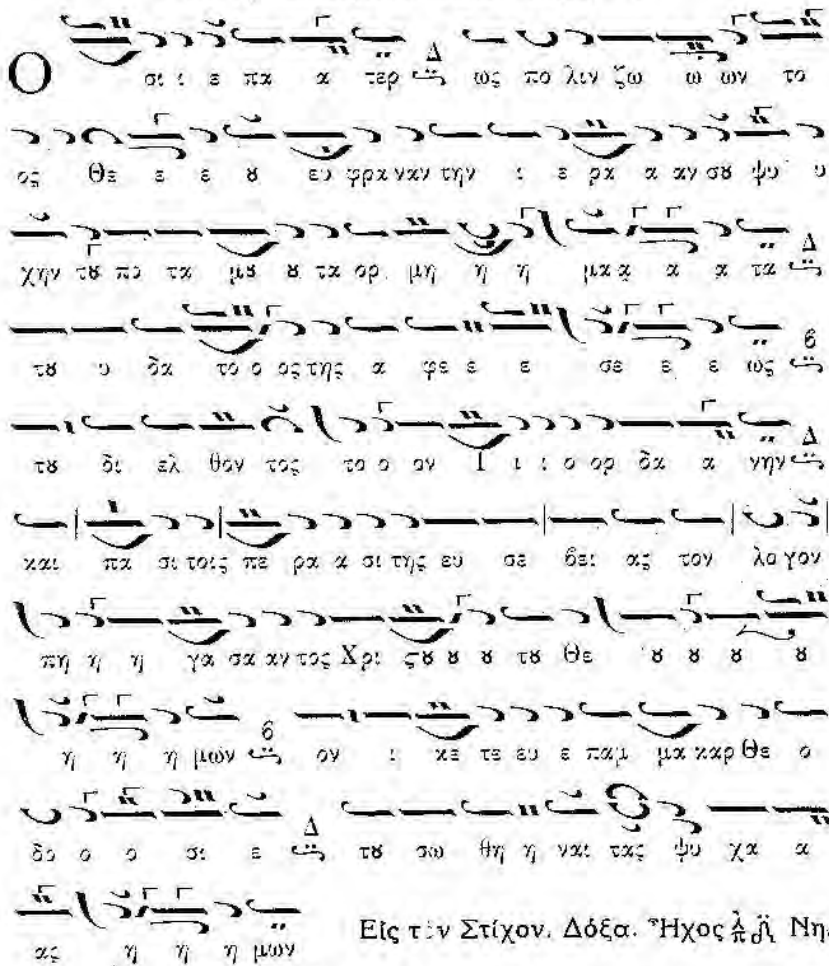 Ο σι ι ε πα α τερ Δ ως πο λιν ζω ω ων το
ος Θε ε ε ȣ ευ φρα ναν την ι ε ρα α αν σȣ ψυ υ
χην τȣ πο τα μȣ ȣ τα ορ μη η η μα α α α τα Δ
τȣ υ δα το ο ος της α φε ε ε σε ε ε ως β
τȣ δι ελ θον τος το ο ον Ι ι ι ο ορ δα α νην Δ
και πα σι τοις πε ρα α σι της ευ σε βει ας τον λο γον
πη η η γα σα αν τος Χρι ςȣ ȣ ȣ τȣ Θε ȣ ȣ ȣ ȣ
η η η μων β ον ι κε τε ευ ε παμ μα καρ Θε ο
δο ο ο σι ε Δ τȣ σω θη η ναι τας ψυ χα α
ας η η η μων Εἰς τὸν Στίχον. Δόξα. Ἦχος Νη.